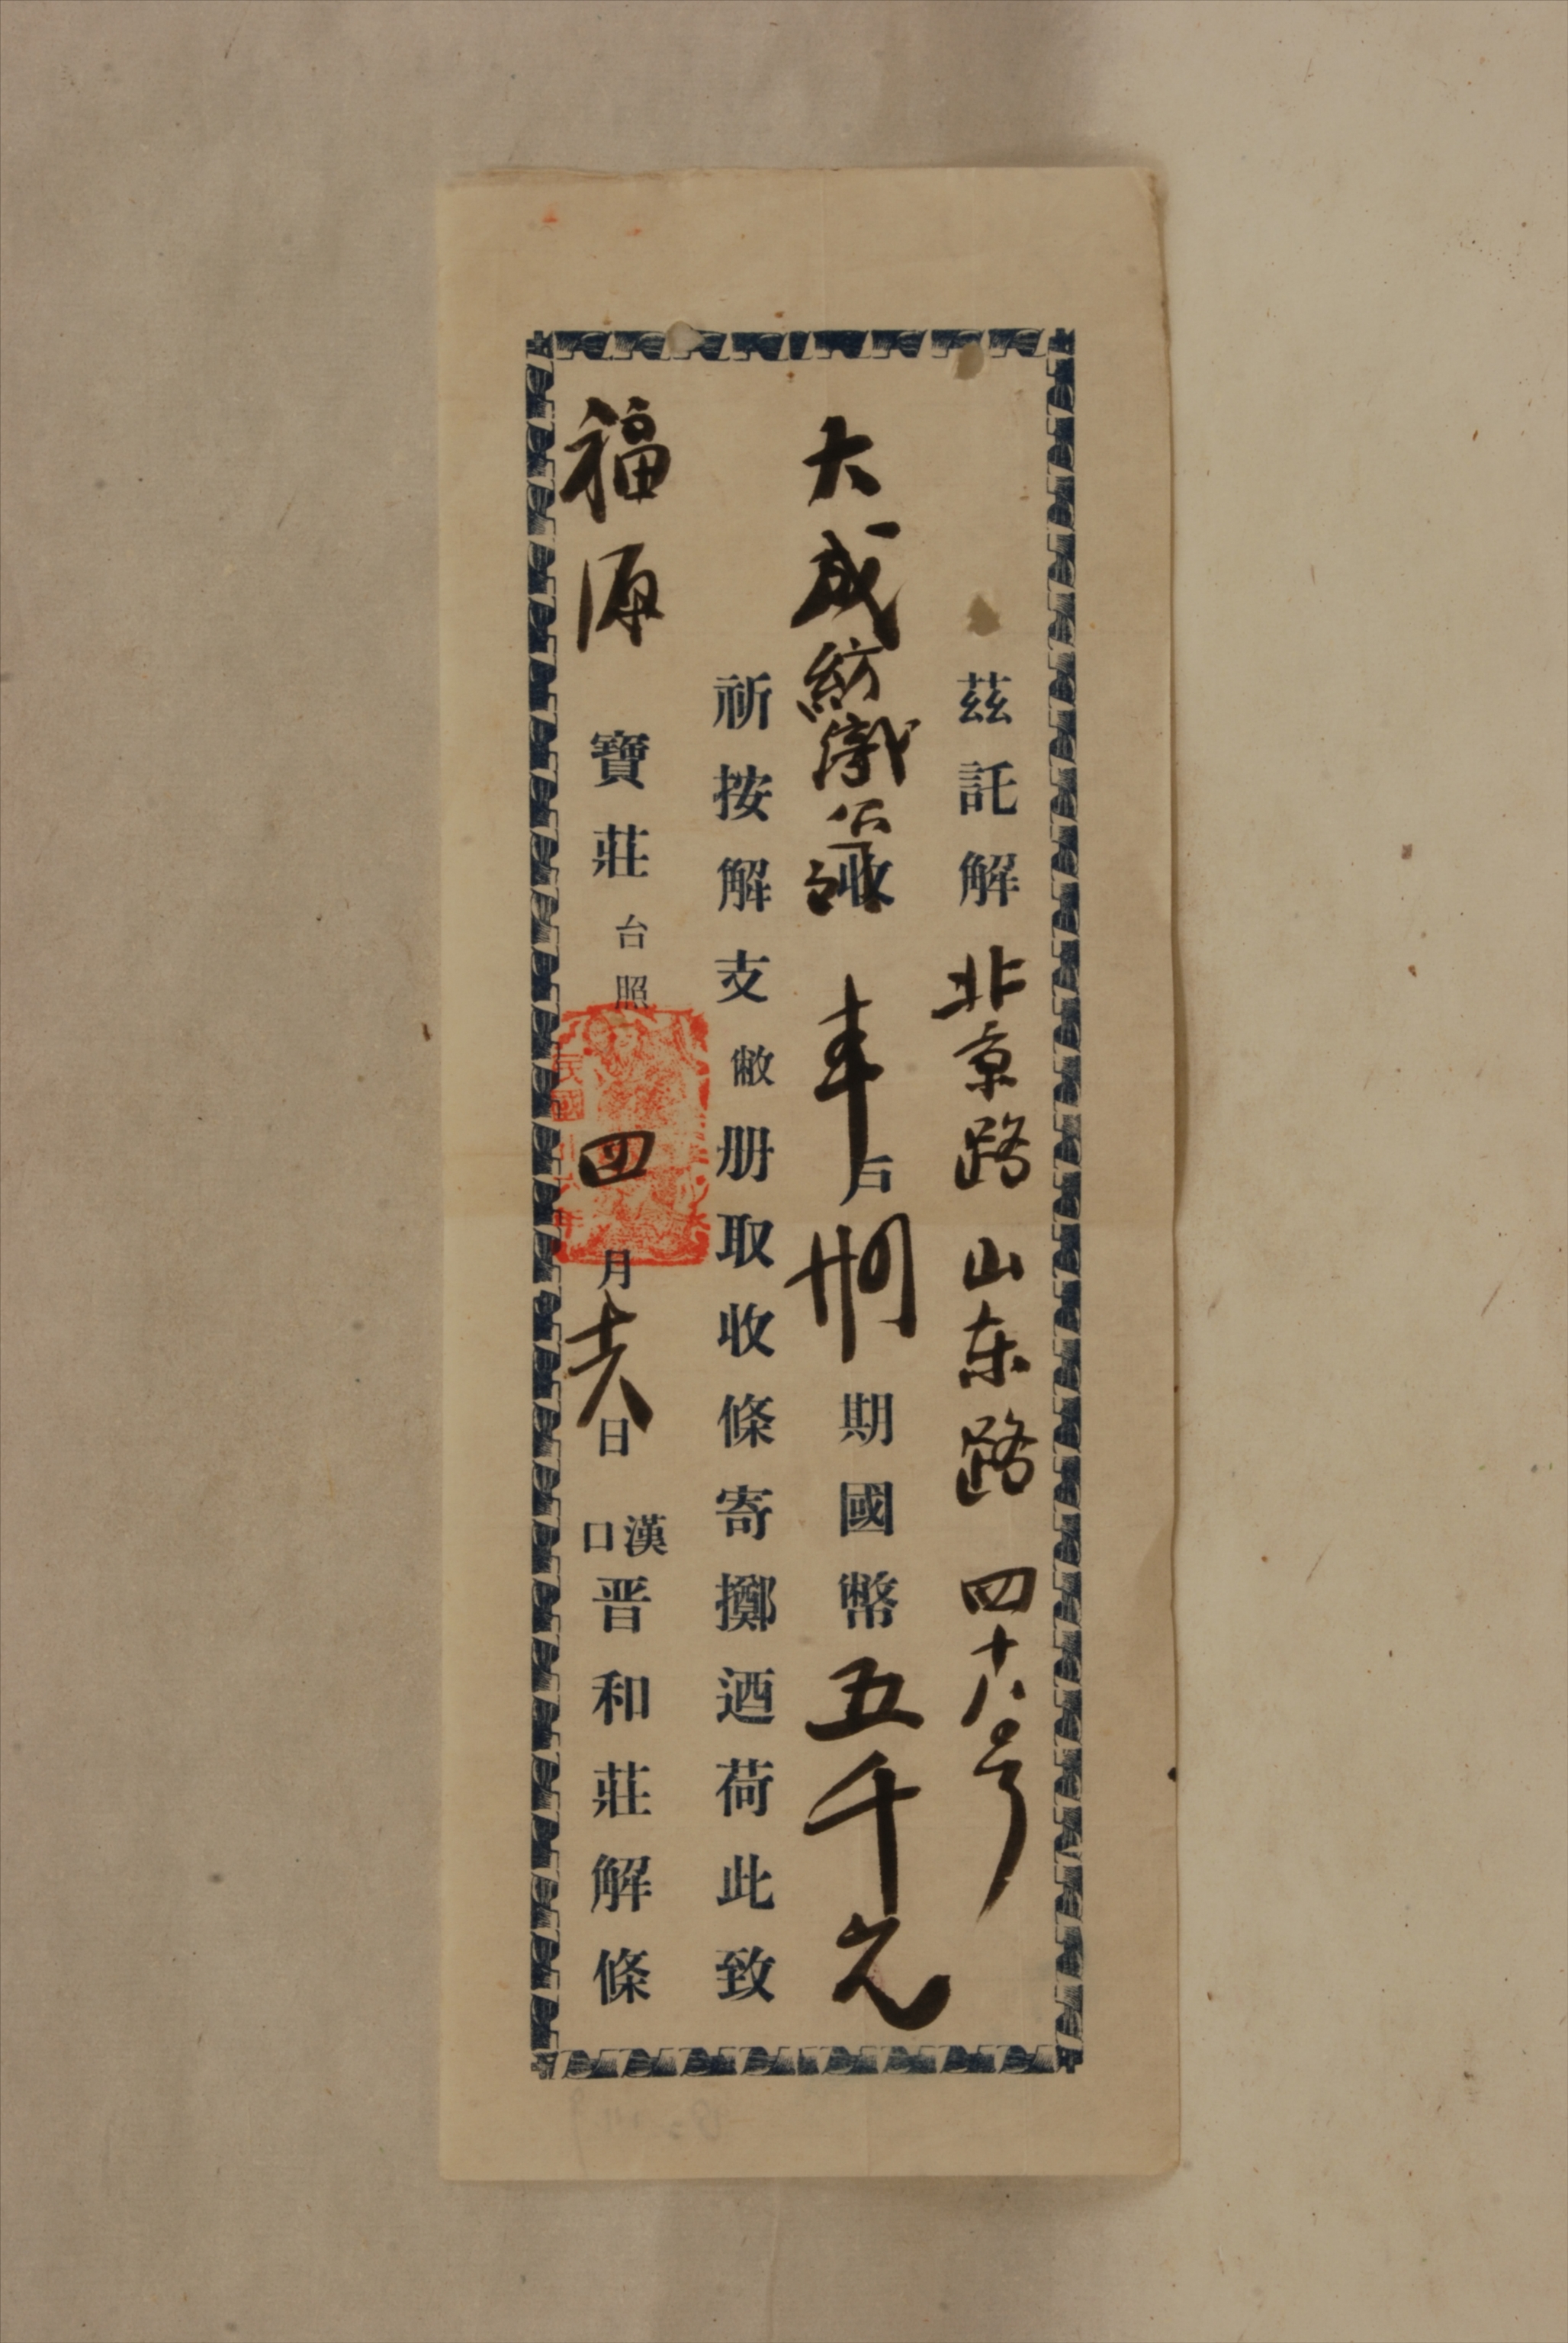 茲託解 北京路 山东路 四十八号
大成紡織公司收 戶 期國幣 五千元
祈按解支敝册取收條寄擲迺荷此致
福源 寶莊 台照 四月十六日 漢口晋和莊解條
民國